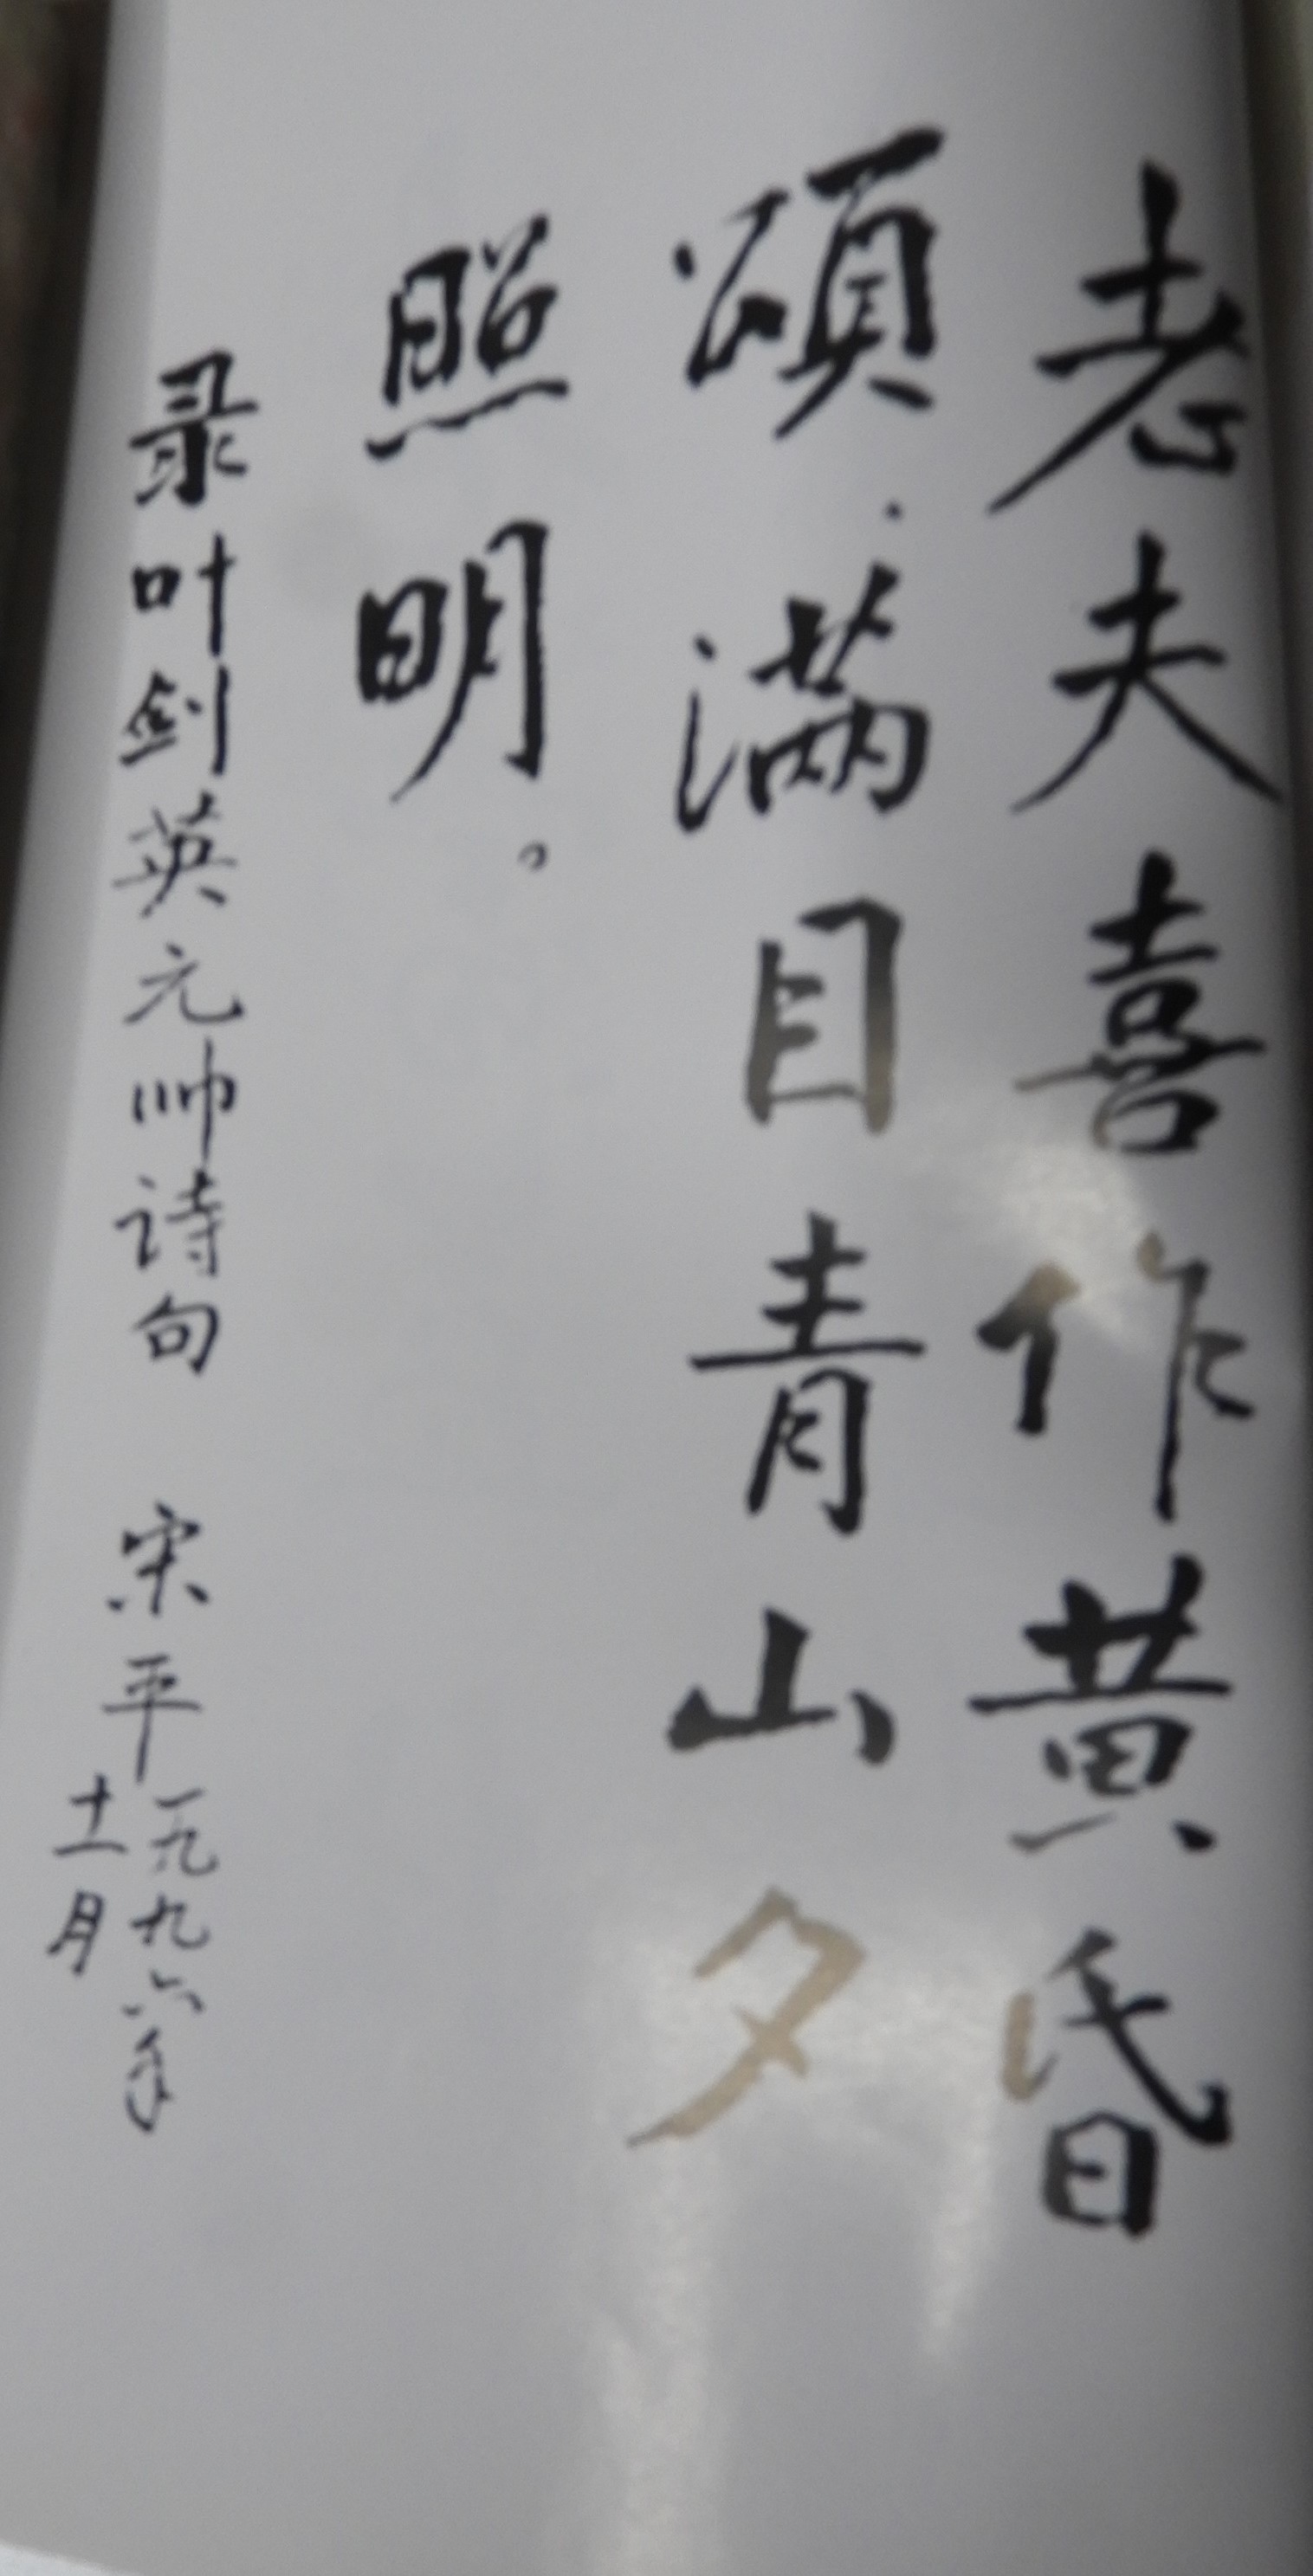 老夫喜作黄昏
颂.满目青山夕
照明。
录叶剑英元帅诗句 宋平一九九六年
十一月